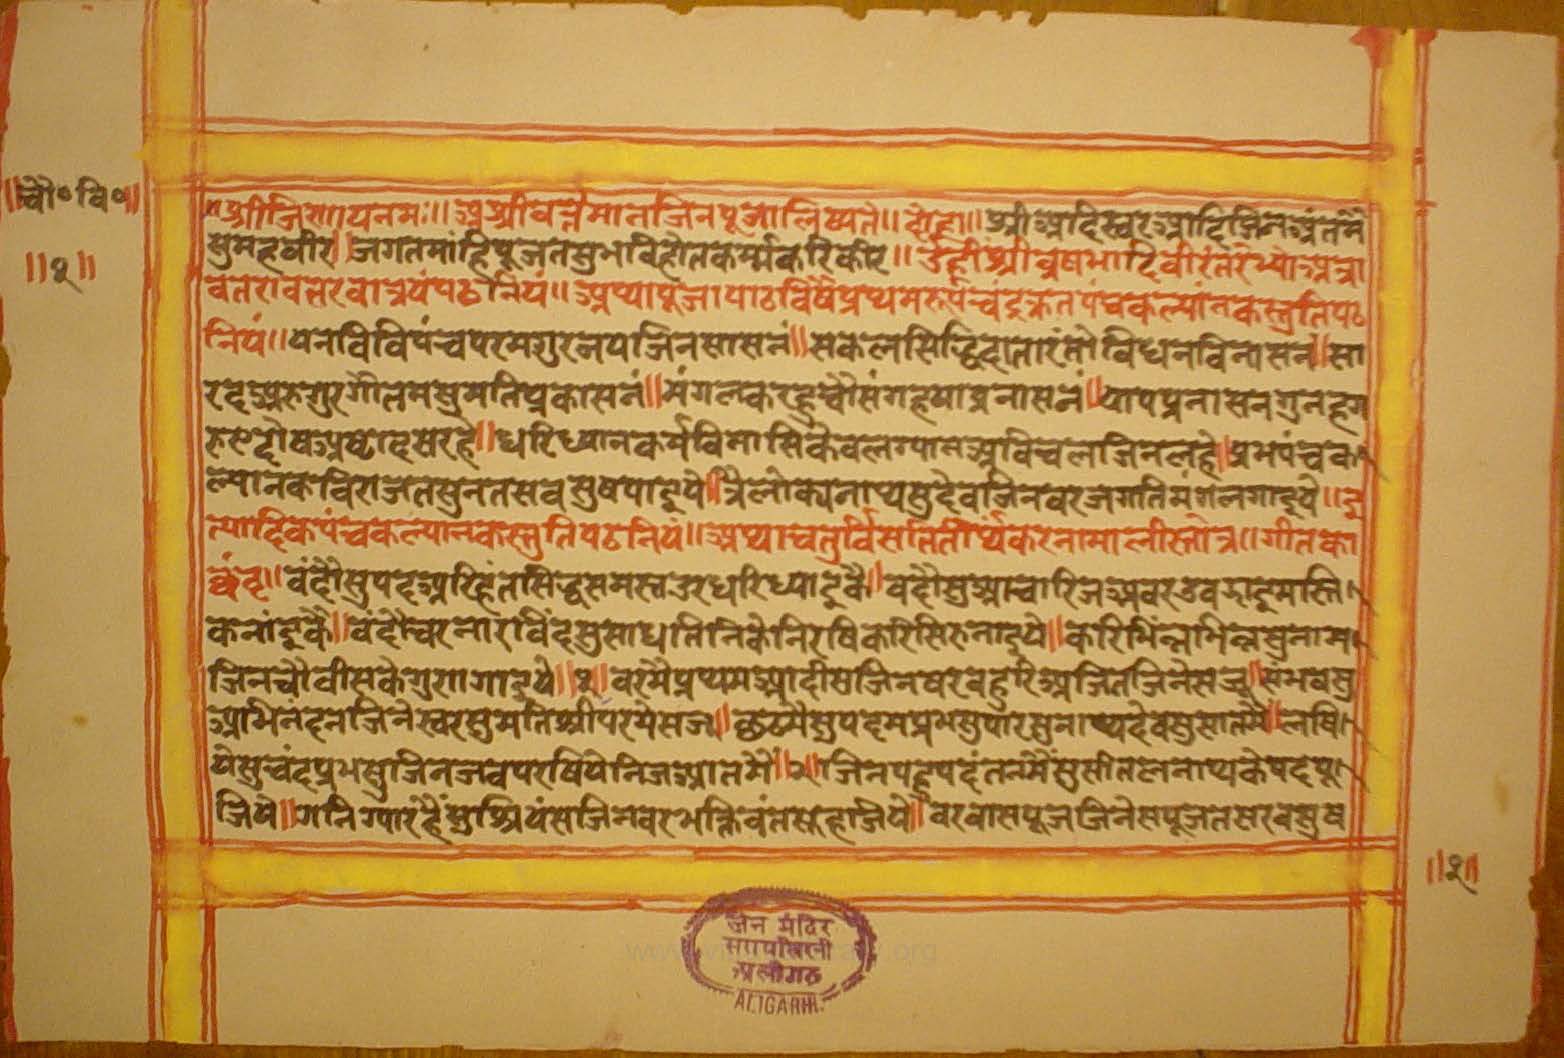 ॥चौ०वि०॥
॥१॥
॥श्रीजिणायनमः॥अथश्रीवर्त्तमानजिनपूजालिष्यते॥दोहा॥श्रीआदिस्वरआदिजिनअंतमै
सुमहवीर॥जगतमांहिपूजतसुभविहौतकर्म्मकरिकीर॥उँह्रीश्रीव्रषभादिवीरंतरेभ्योअत्रा
वतरावतरवात्रयंपठनियं॥अथ्यापूजापाठविषैप्रथमरुपचंद्रक्रतपंचकल्यांनकस्तुतिपठ
नियं॥पनविविपंच्चपरमगुरजयजिनसासनं॥सकलसिद्धिदातारंतौविघनविनासनं॥सा
रदअरुगुरगौतमसुमतिप्रकासनं॥मंगलकरहुच्चौसंगहपाप्रनासनं॥पापप्रनासनगुनहग
रुएदोषअष्टादसरहै॥धरिध्यानकर्मविनासिकेवलग्यानअविचलजिनलहै॥प्रभपंच्चक
ल्यानकविराजतसुनतसवसुषपाइये॥त्रैलोक्यनाथसुदेवजिनवरजगतिमंगलगाइये॥इ
त्यादिकपंच्चकल्यानकस्तुतिपठनियं॥अथाचतुर्विंसतितीर्थकरनामालीस्तोत्र॥गीतका
छंद॥वंदौसुपदअरिहंतसिद्धसमस्तउरधरिध्याइकै॥वदौसुआचारिजअवरउवझाइमास्ति
कनांइकै॥वंदौचरनारविंदसुसाधतिनिकैनिरषिकरिसिरुनाइयै॥करिभिंन्नभिन्नसुनाम
जिनचौवीसकेगुणगाइयै॥१॥वरमैप्रथमआदीसजिनवरवहुरिअजितजिनेसजू॥संभवसु
आभिनंदनजिनेस्वरसुमतिश्रीपरमेसजू॥छठमैसुपदमप्रभसुपारसुनाथदेवसुसातमै॥लषि
येसुचंदप्रभसुजिनजवपरषियेनिजआतमै॥२॥जिनपहुपदंतनमैंसुसीतलनाथकेपदपू
जिये॥गनिग्यारंहैंसुश्रियंसजिनवरभक्तिवंतसहूजिये॥वरवासपूजजिनेसपूजतसरवसुष
॥१॥
जैन मंदिर
अलीगढ़
ALIGARH.